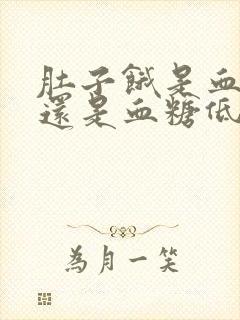 肚子餓是血
還是血糖低
為月一笑